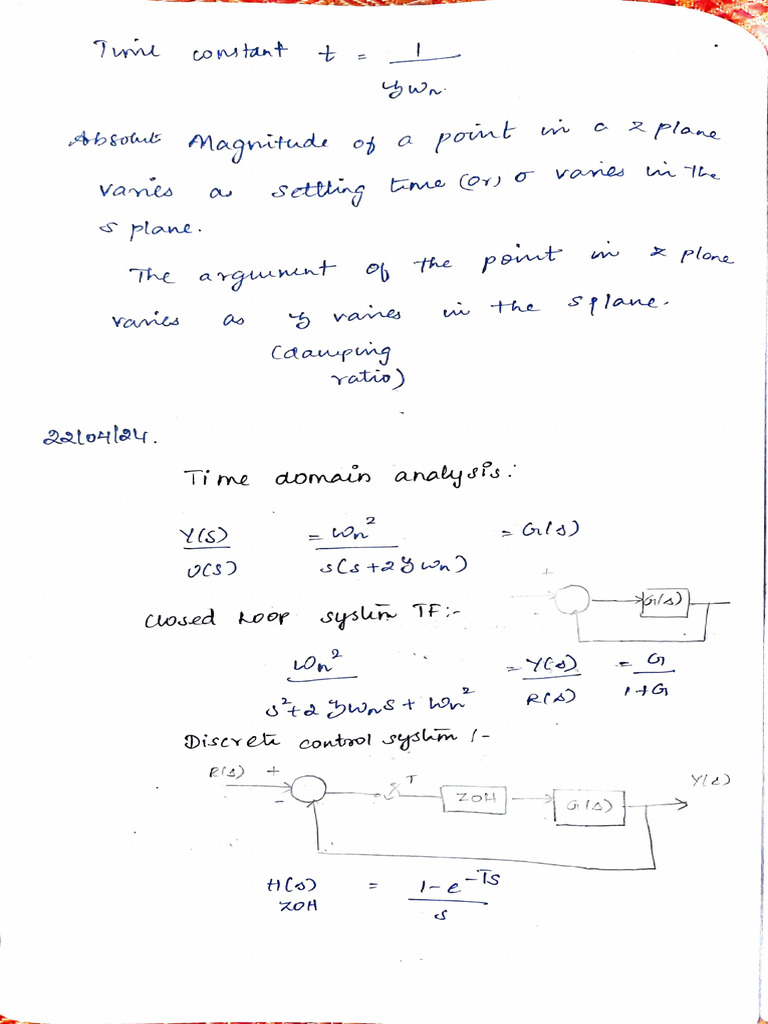 Time constant t = 1 / ξωn
Absolute Magnitude of a point in a z plane
varies as settling time (or) σ varies in the
s plane.
The argument of the point in z plane
varies as ξ varies in the s plane.
(damping
ratio)
22/04/24.
Time domain analysis:
Y(s) / U(s) = ωn² / s(s+2ξωn) = G(s)
+
G(s)
Closed Loop system TF:-
ωn² / s²+2ξωns+ωn² = Y(s) / R(s) = G / 1+G
Discrete control system :-
R(s) + - T ZOH G(s) Y(s)
H(s) = 1-e^-Ts / s
ZOH